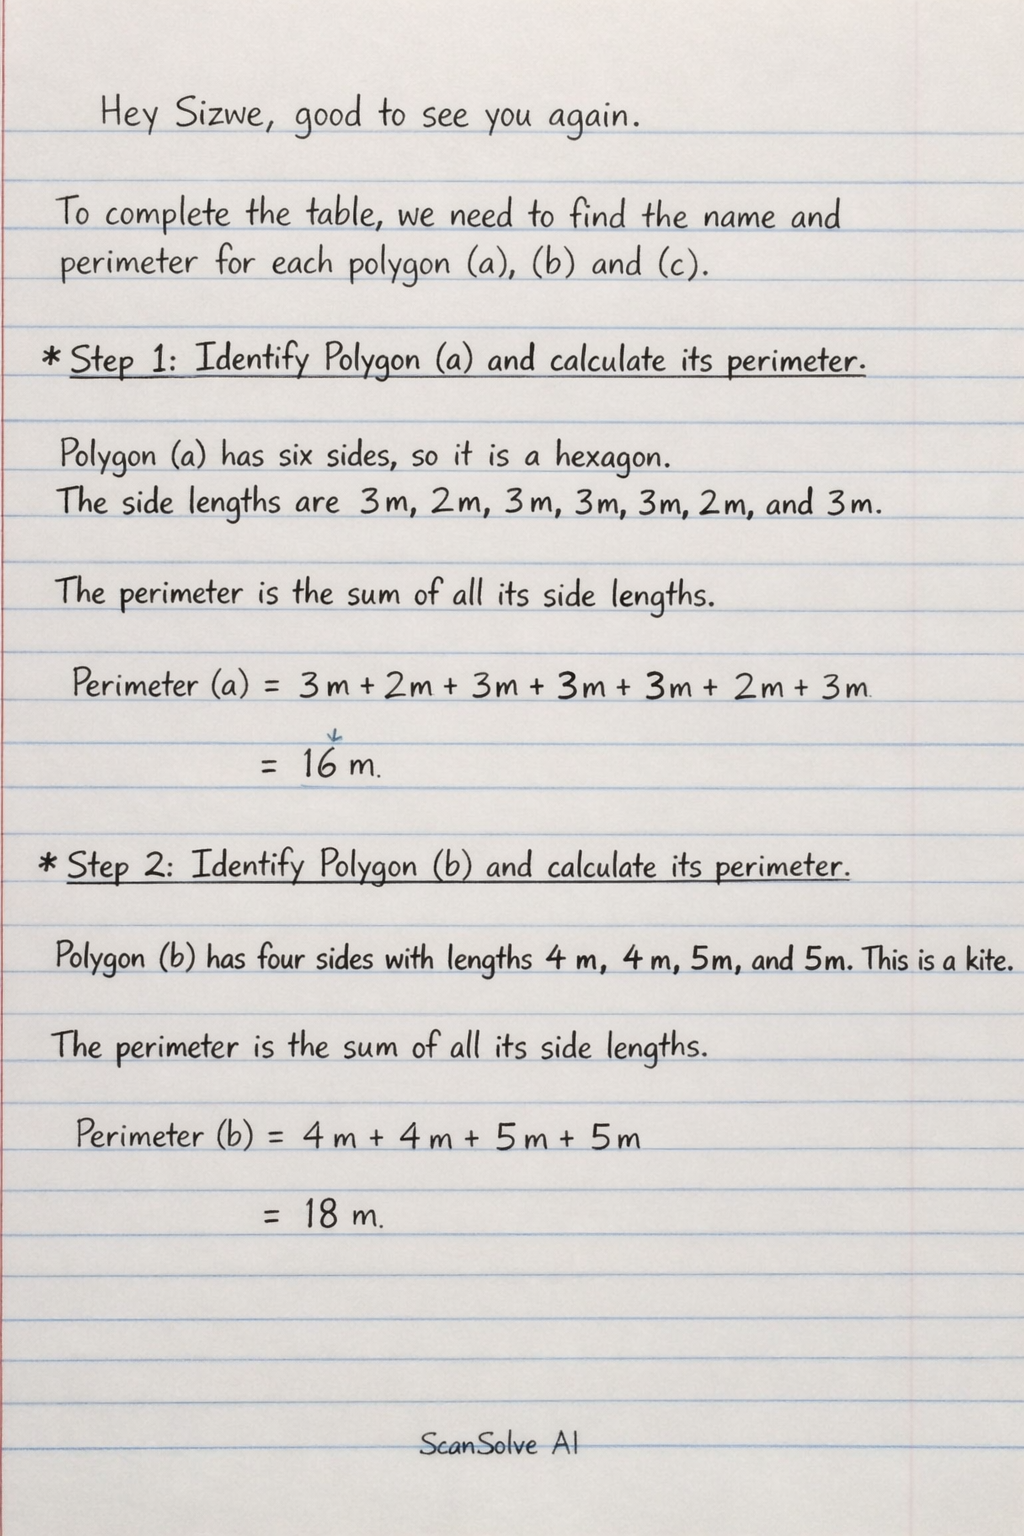 Hey Sizwe, good to see you again.
To complete the table, we need to find the name and
perimeter for each polygon (a), (b) and (c).
* Step 1: Identify Polygon (a) and calculate its perimeter.
Polygon (a) has six sides, so it is a hexagon.
The side lengths are 3m, 2m, 3m, 3m, 3m, 2m, and 3m.
The perimeter is the sum of all its side lengths.
Perimeter (a) = 3m + 2m + 3m + 3m + 3m + 2m + 3m.
= 16 m.
* Step 2: Identify Polygon (b) and calculate its perimeter.
Polygon (b) has four sides with lengths 4 m, 4 m, 5m, and 5m. This is a kite.
The perimeter is the sum of all its side lengths.
Perimeter (b) = 4m + 4m + 5m + 5m
= 18 m.
ScanSolve AI